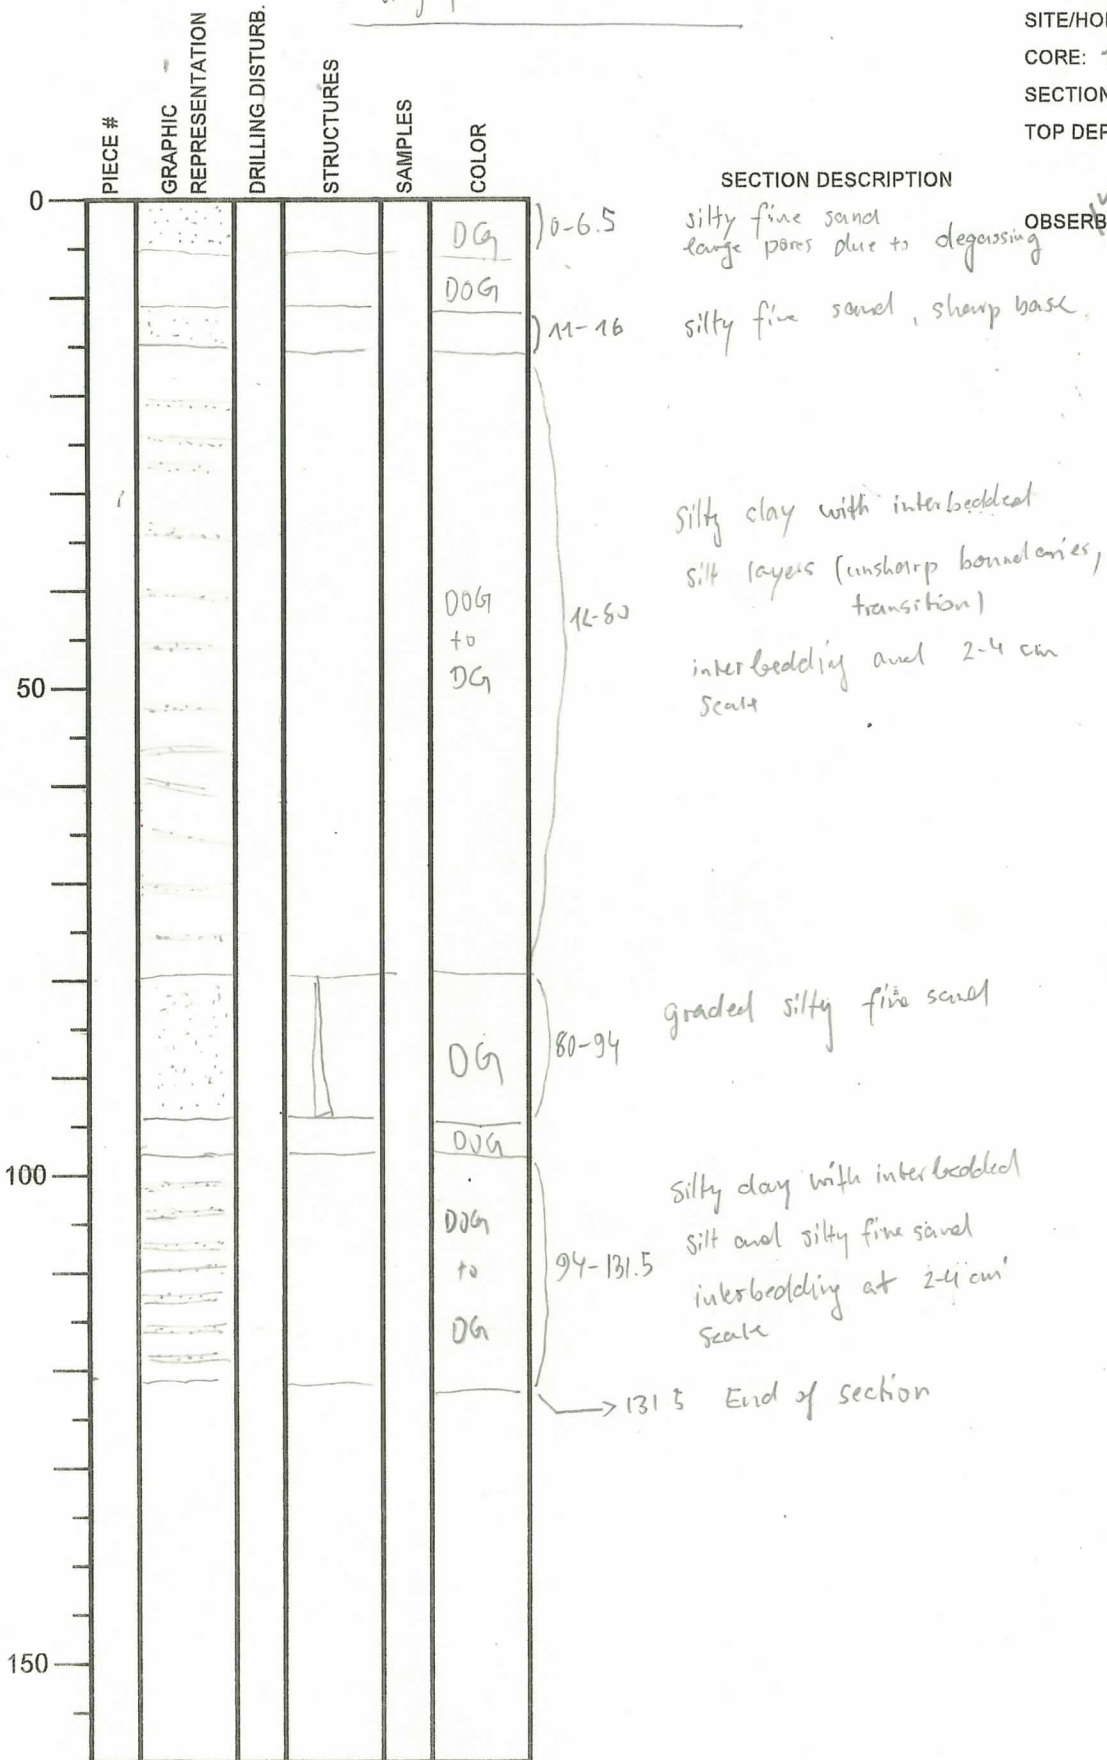 SITE/HO
CORE:
SECTION
TOP DEP
PIECE #
GRAPHIC
REPRESENTATION
DRILLING DISTURB.
STRUCTURES
SAMPLES
COLOR
SECTION DESCRIPTION
OBSERB
0
DG
0-6.5
silty fine sand
large pores due to degassing
DOG
11-16
silty fine sand, sharp base.
Silty clay with interbedded
silt layers (unsharp boundaries,
transition)
DOG
to
DG
16-80
interbedding and 2-4 cm
Scale
50
DG
80-94
graded silty fine sand
DOG
100
DOG
to
DG
94-131.5
Silty clay with interbedded
silt and silty fine sand
interbedding at 2-4 cm
Scale
131.5 End of section
150